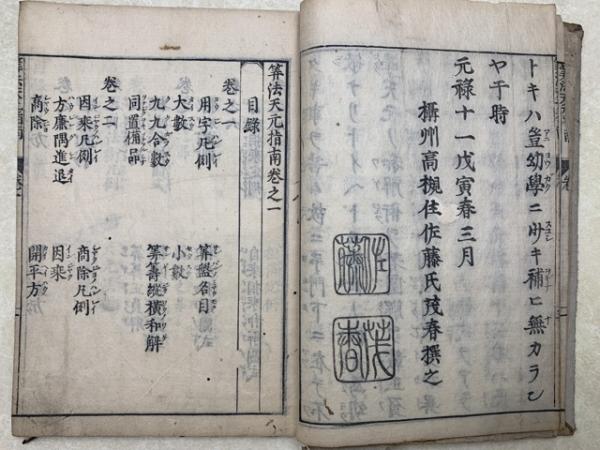 トキハ豈幼學ニ少キ補ヒ無カラン
ヤ于時
元禄十一戊寅春三月
攝州高槻住佐藤氏茂春撰之
佐藤
茂春
算法天元指南卷之一
目録
卷之一
用字凡例 算盤名目
大數 小數
九九合數 算籌縱横和解
同置備品
卷之二
因乘凡例 商除凡例
方廉隅進退 因乘
商除 開平方